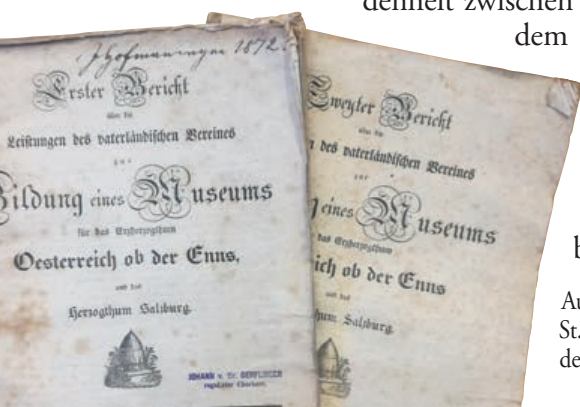 denheit zwischen
dem
Erster Bericht
über die
Leistungen des vaterländischen Vereines
zur
Bildung eines Museums
für das Erzherzogthum
Oesterreich ob der Enns,
und das
Herzogthum Salzburg.
1872.
JOHANN v. Dr. GERFLINGER
regulirter Chorherr.
Zweyter Bericht
über die
des vaterländischen Vereines
zur
eines Museums
das Erzherzogthum
ich ob der Enns
und das
thum Salzburg.
b
Au
St.
de